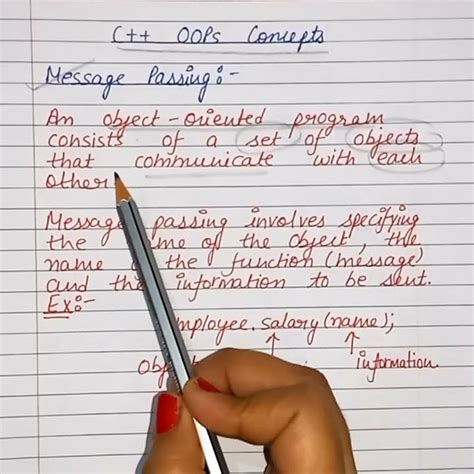 C++ OOPs Concepts
Message Passing:-
An object-oriented program
consists of a set of objects
that communicate with each
other
Message passing involves specifying
the name of the object, the
name of the function (message)
and the information to be sent.
Ex:-
employee.salary(name);
information